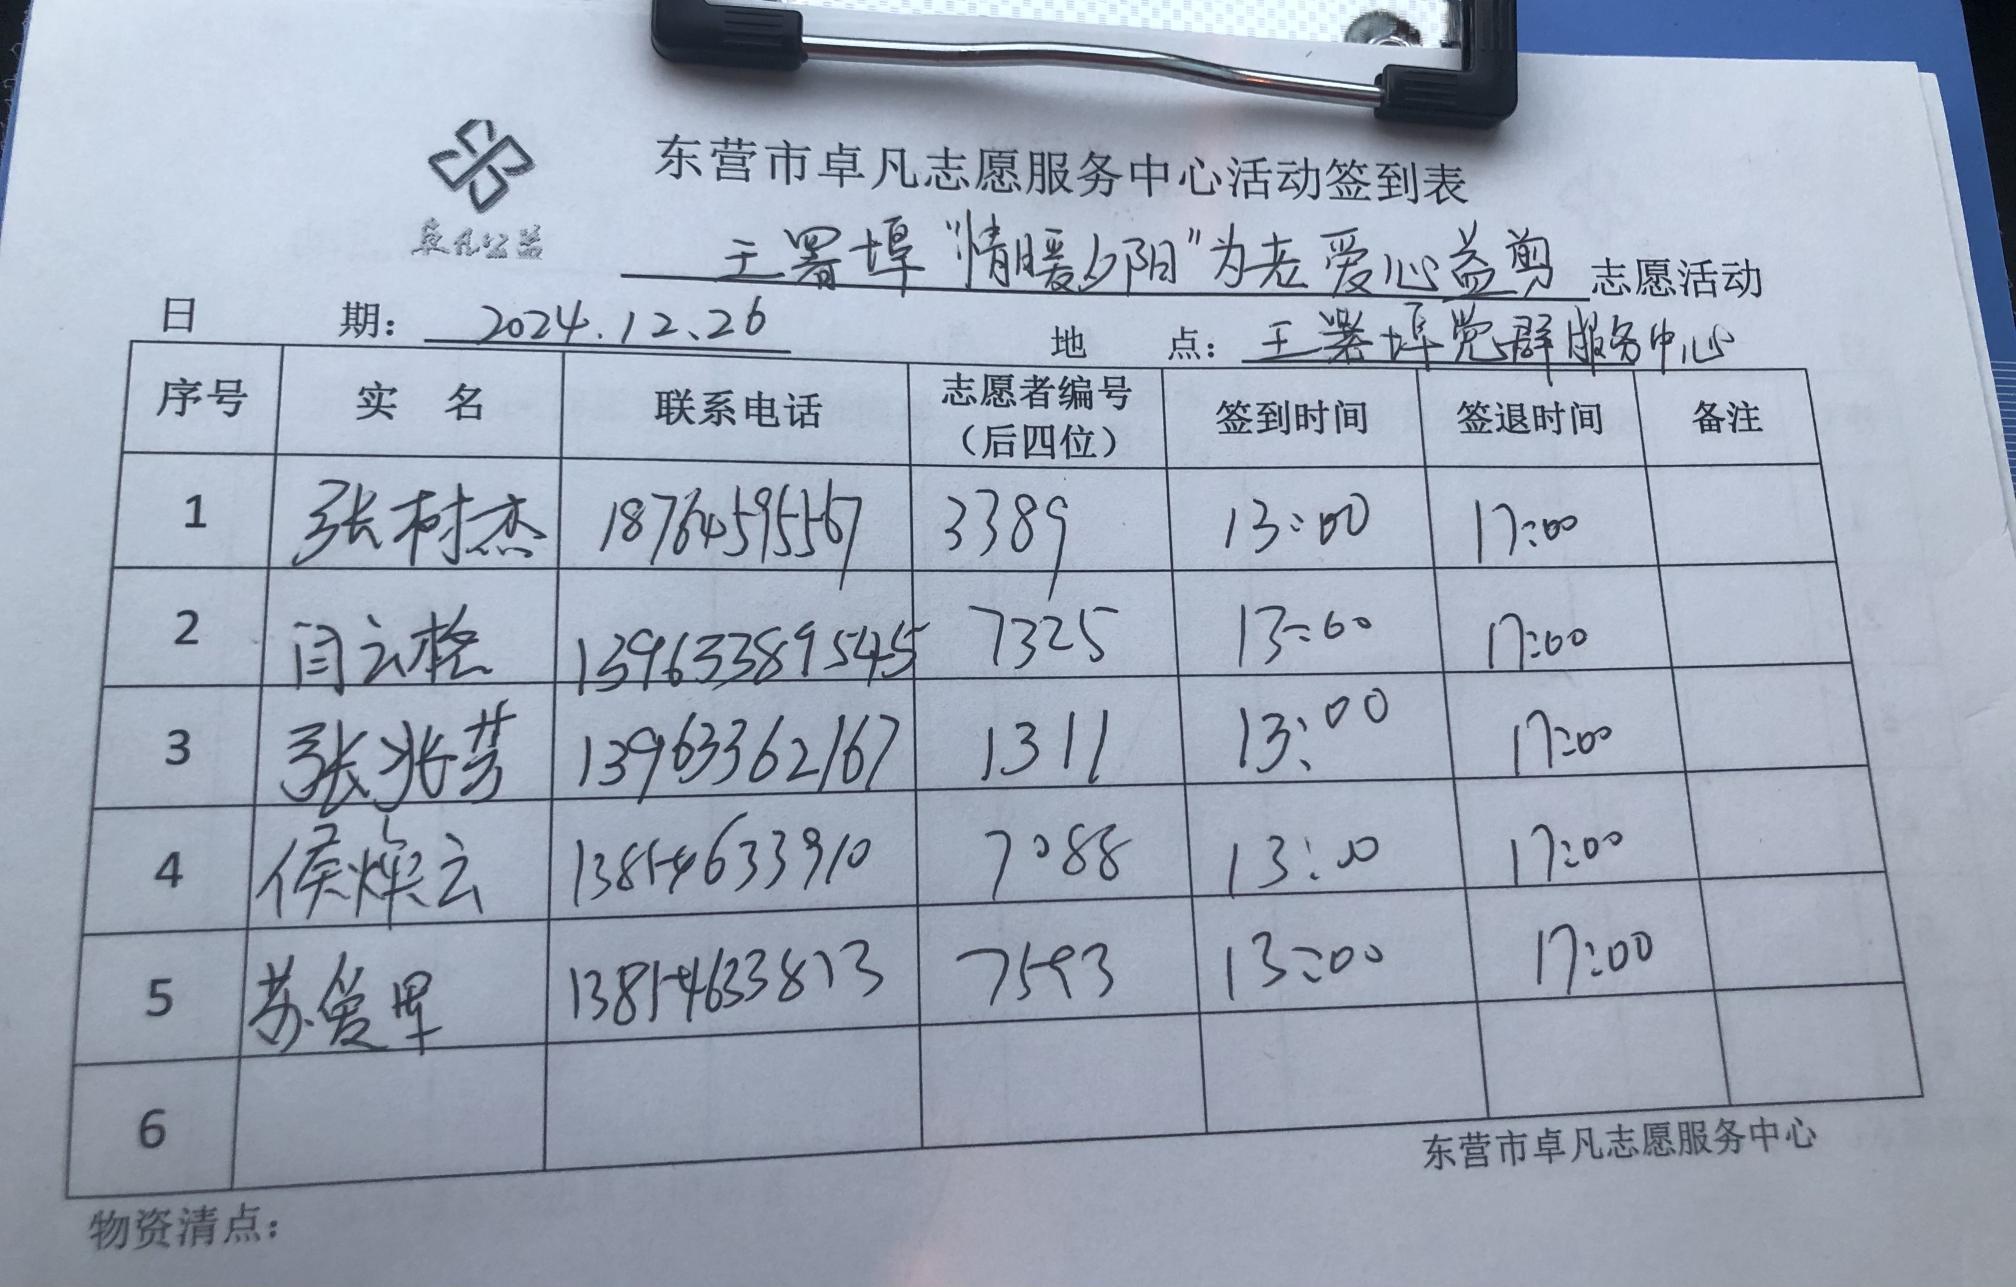 东营市卓凡志愿服务中心活动签到表
卓凡公益
王署埠“情暖夕阳”为老爱心益剪 志愿活动
日 期：2024.12.26 地 点：王署埠党群服务中心
序号 实 名 联系电话 志愿者编号（后四位） 签到时间 签退时间 备注
1 张树杰 18764595567 3389 13:00 17:00
2 闫云 139633895545 7325 13:00 17:00
3 张兆芳 13963362167 1311 13:00 17:00
4 侯焕云 13854633910 7088 13:00 17:00
5 苏爱 13854633873 7593 13:00 17:00
6
东营市卓凡志愿服务中心
物资清点：